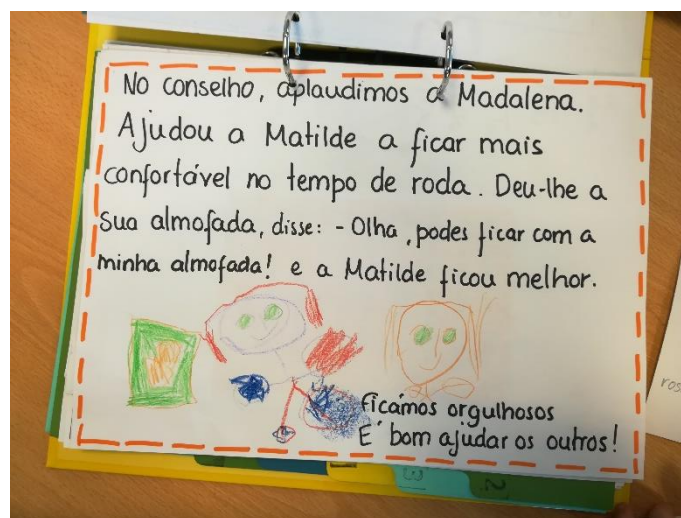 No conselho, aplaudimos a Madalena.
Ajudou a Matilde a ficar mais
confortável no tempo de roda. Deu-lhe a
sua almofada, disse: - Olha, podes ficar com a
minha almofada! e a Matilde ficou melhor.
Ficámos orgulhosos
É bom ajudar os outros!
ros
2